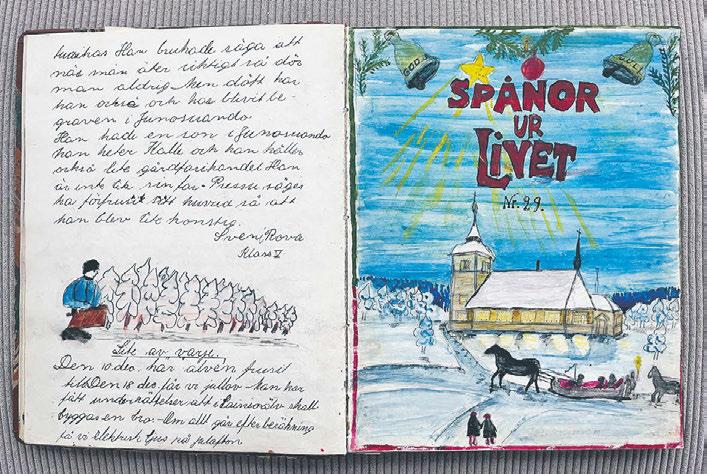 Han brukade säga att
när man åker riktigt så dör
man aldrig. Men dött har
han också och har blivit be-
graven i Junosuando
Han hade en son i Junosuando
han heter Halle och han håller
också lite gårdfarihandel Han
är inte lik sin far. Presse säges
ha förfrusit sitt huvud så att
han blev lite konstig.
Sven Rova
Klass V
Lite av varje.
Den 10 dec. har älven frusit
till. Den 18 dec får vi jullov. Man har
fått underrättelser att i Lainioälv skall
byggas en bro. Om allt går efter beräkning
få vi elektrisk ljus på julafton
GOD
JUL
SPÅNOR
UR
LIVET
Nr. 29.